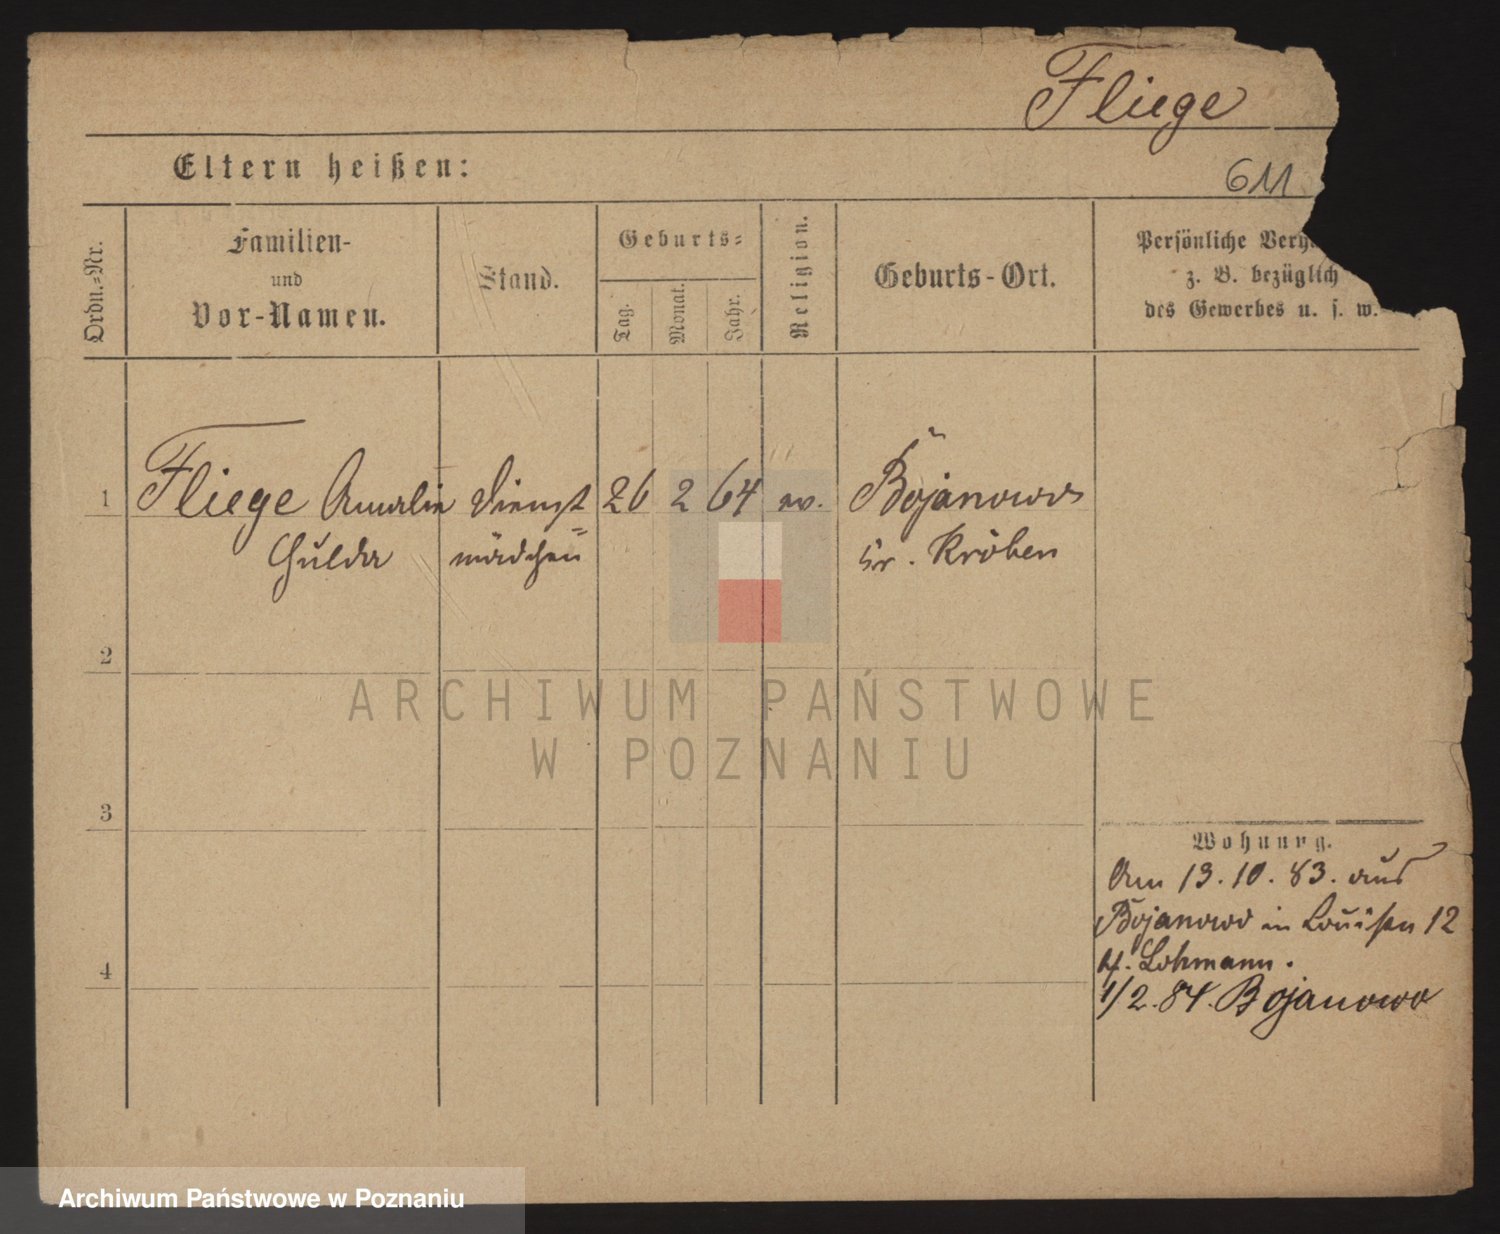 Fliege
Eltern heißen:
611
Ordn.-Nr.
Familien-
und
Vor-Namen.
Stand.
Geburts-
Tag.
Monat.
Jahr.
Religion.
Geburts-Ort.
Persönliche
z. B. bezüglich
des Gewerbes u. s. w.
1
Fliege Amalie
Hulda
Dienst
mädchen
26
2
64
ev.
Bojanowo
Kr. Kröben
2
ARCHIWUM PAŃSTWOWE
W POZNANIU
3
4
Wohnung.
Am 13.10.83. aus
Bojanowo in Louisen 12
Lohmann.
1/2.84. Bojanowo
Archiwum Państwowe w Poznaniu